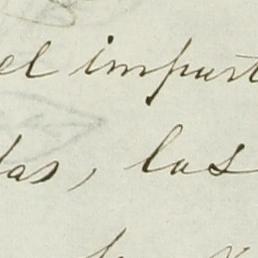 el import
das, las